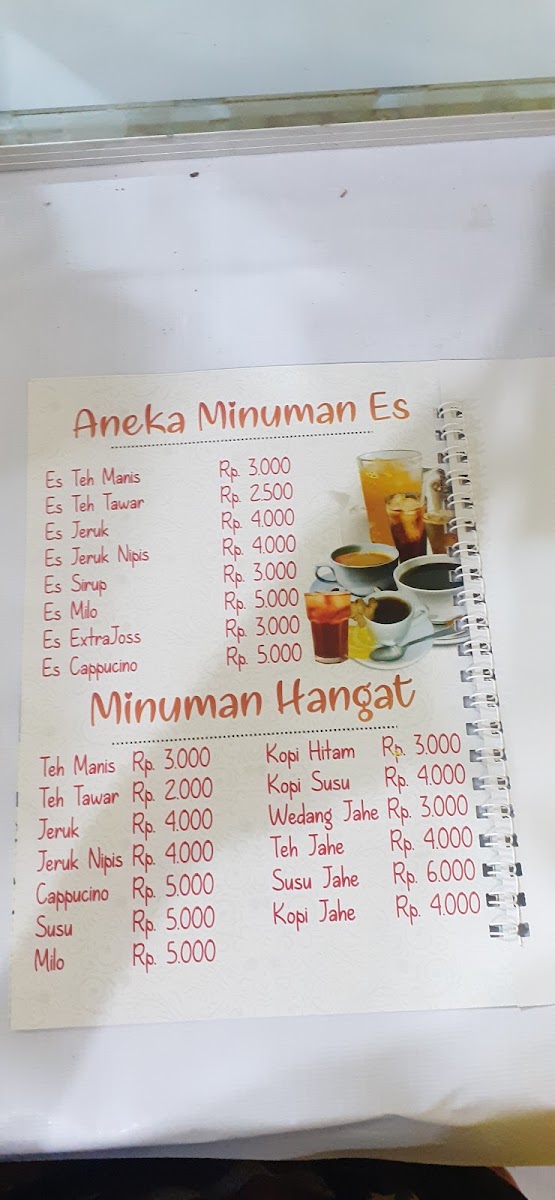 Aneka Minuman Es
Es Teh Manis Rp. 3.000
Es Teh Tawar Rp. 2.500
Es Jeruk Rp. 4.000
Es Jeruk Nipis Rp. 4.000
Es Sirup Rp. 3.000
Es Milo Rp. 5.000
Es ExtraJoss Rp. 3.000
Es Cappucino Rp. 5.000
Minuman Hangat
Teh Manis Rp. 3.000
Teh Tawar Rp. 2.000
Jeruk Rp. 4.000
Jeruk Nipis Rp. 4.000
Cappucino Rp. 5.000
Susu Rp. 5.000
Milo Rp. 5.000
Kopi Hitam Rp. 3.000
Kopi Susu Rp. 4.000
Wedang Jahe Rp. 3.000
Teh Jahe Rp. 4.000
Susu Jahe Rp. 6.000
Kopi Jahe Rp. 4.000